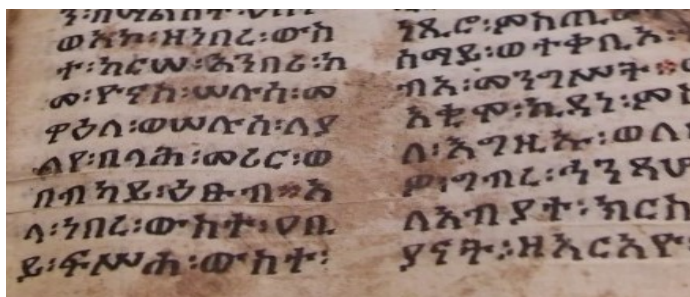 ወአኮ፡ዘነበረ፡ውስ
ተ፡ከርሠ፡አንበሪ፡ከ
መ፡ዮናስ፡ሠሉስ፡መ
ዋዕለ፡ወሠሉስ፡ለያ
ልየ፡በባሕ፡መሪር፡ወ
በብካይ፡ዕፁብ፡፡አ
ላ፡ነበረ፡ውስተ፡ዐቢ
ይ፡ፍሥሐ፡ውስተ፡
ንጺሮ፡ምስጢ
ሰማይ፡ወተቀቢኦ፡
ብአ፡መንግሥት፡፡
አቂሞ፡ኪዳነ፡
ለ፡እግዚኡ፡ወለ
ዎ፡ግብረ፡ሓንጻ
ለአብያተ፡ክርስ
ያናት፡፡ዘአርአዮ